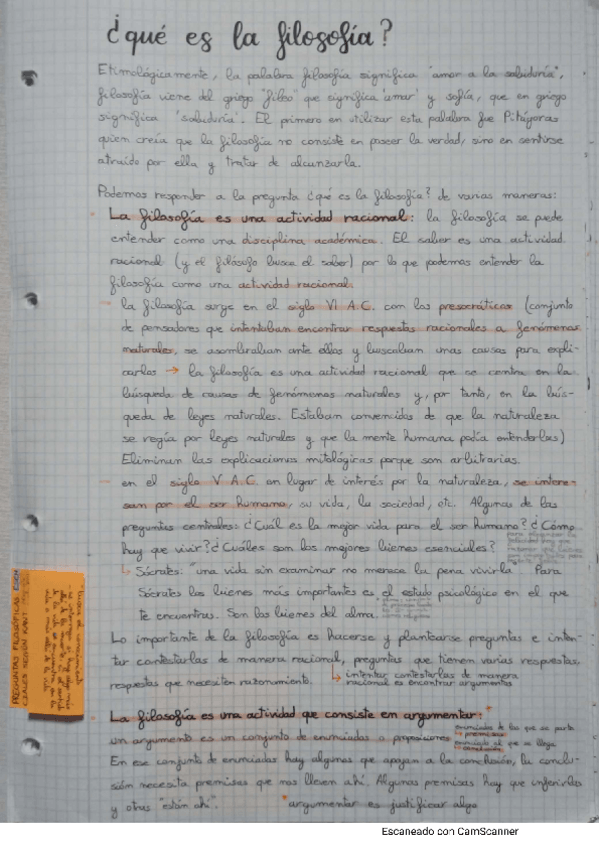 ¿qué es la filosofía?
Etimológicamente, la palabra filosofía significa "amor a la sabiduría",
filosofía viene del griego "fileo" que significa 'amar' y sofía, que en griego
significa 'sabiduría'. El primero en utilizar esta palabra fue Pitágoras
quien creía que la filosofía no consiste en poseer la verdad, sino en sentirse
atraído por ella y tratar de alcanzarla.
Podemos responder a la pregunta ¿qué es la filosofía? de varias maneras:
La filosofía es una actividad racional: la filosofía se puede
entender como una disciplina académica. El saber es una actividad
racional (y el filósofo busca el saber) por lo que podemos entender la
filosofía como una actividad racional.
→ la filosofía surge en el siglo VI A.C. con los presocráticos (conjunto
de pensadores que intentaban encontrar respuestas racionales a fenómenos
naturales, se asombraban ante ellos y buscaban unas causas para expli-
carlos → la filosofía es una actividad racional que se centra en la
búsqueda de causas de fenómenos naturales y, por tanto, en la bús-
queda de leyes naturales. Estaban convencidos de que la naturaleza
se regía por leyes naturales y que la mente humana podía entenderlas)
Eliminan las explicaciones mitológicas porque son arbitrarias.
→ en el siglo V A.C. en lugar de interés por la naturaleza, se intere-
san por el ser humano, su vida, la sociedad, etc. Algunas de las
preguntas centrales: ¿Cuál es la mejor vida para el ser humano? ¿Cómo
hay que vivir? ¿Cuáles son los mejores bienes esenciales?
↳ Sócrates: "una vida sin examinar no merece la pena vivirla Para
Sócrates los bienes más importantes es el estado psicológico en el que
te encuentras. Son los bienes del alma.
Lo importante de la filosofía es hacerse y plantearse preguntas e inten-
tar contestarlas de manera racional, preguntas que tienen varias respuestas,
respuestas que necesiten razonamiento. ↳ intentar contestarlas de manera
racional es encontrar argumentos
PREGUNTAS FILOSÓFICAS ESEN
CIALES SEGÚN KANT
La filosofía es una actividad que consiste en argumentar: *
un argumento es un conjunto de enunciados o proposiciones
enunciados de los que se parte
↳ premisas
enunciado al que se llega
↳ conclusión
En ese conjunto de enunciados hay algunos que apoyan a la conclusión, la conclu-
sión necesita premisas que nos lleven ahí. Algunas premisas hay que inferirlas
y otras "están ahí". *argumentar es justificar algo
Escaneado con CamScanner